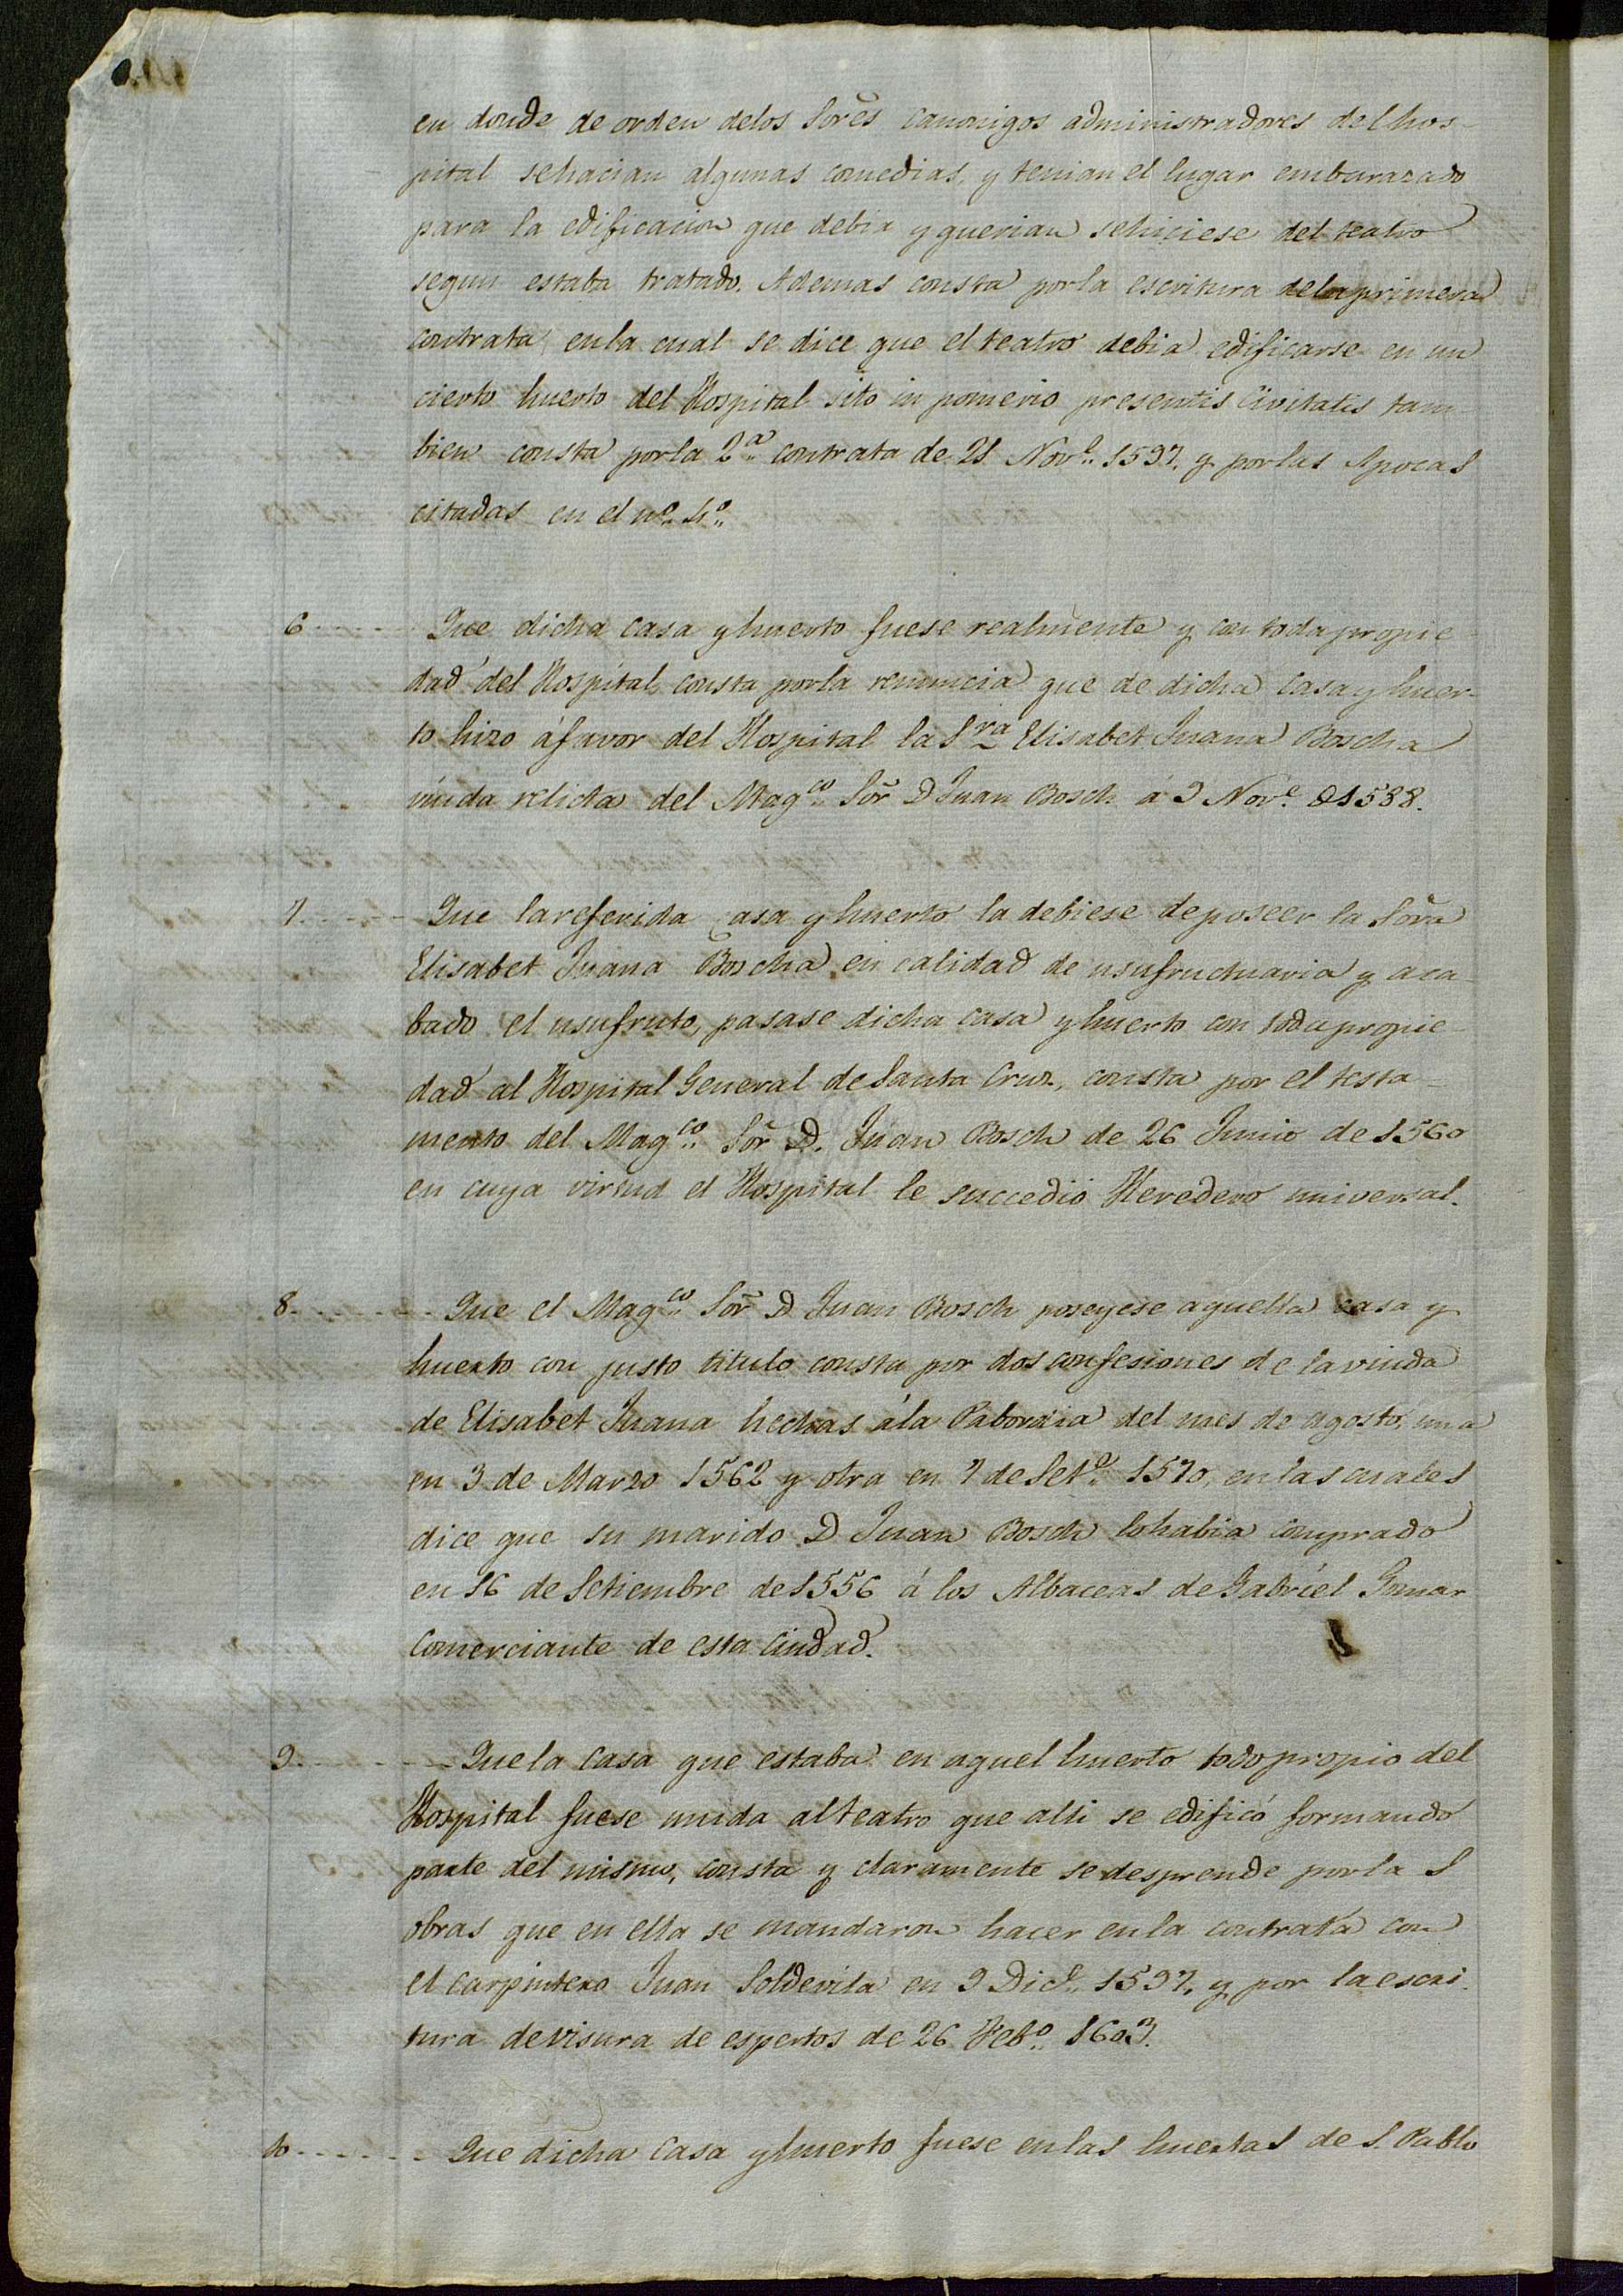 en donde de orden delos Sores canonigos administradores del hos-
pital sehacian algunas comedias, y tenian el lugar embarazado
para la edificacion que debia y querian sehiciese del teatro
segun estaba tratado. Ademas consta porla escritura dela primera
contrata enla cual se dice que el teatro debia edificarse en un
cierto huerto del Hospital sito in pomerio presentis Civitatis tam
bien consta porla 2.ª contrata de 21 Nov.e 1597, y porlas Apocas
citadas en el n.o 4.o
6 ----- Que dicha casa y huerto fuese realmente y con toda propie
dad del Hospital, consta porla renuncia que de dicha casa y huer-
to hizo á favor del Hospital la Sra Elisabet Juana Boscha
viuda relicta del Mag.co Sor D Juan Bosch á 9 Nov.e D 1588.
7. ----- Que la referida casa y huerto la debiese deposeer la Sora
Elisabet Juana Boscha en calidad de usufructuaria y aca
bado el usufruto, pasase dicha casa y huerto con toda propie-
dad al Hospital General de Santa Cruz, consta por el testa-
mento del Mag.co Sor D. Juan Bosch de 26 Junio de 1560
en cuya virtud el Hospital le succedió Heredero universal.
8. ----- Que el Mag.co Sor D Juan Bosch poseyese aquella casa y
huerto con justo titulo consta por dos confesiones de la viuda
de Elisabet Juana hechas á la Pabordia del mes de agosto, una
en 3 de Marzo 1562 y otra en 7 de Set.e 1570, en las cuales
dice que su marido D Juan Bosch lo habia comprado
en 16 de Setiembre de 1556 á los Albaceas de Gabriel Gomar
Comerciante de esta Ciudad.
9. ----- Que la casa que estaba en aquel huerto todo propio del
Hospital fuese unida al teatro que alli se edificó formando
parte del mismo, consta y claramente se desprende por la s
obras que en ella se mandaron hacer en la contrata con
el carpintero Juan Soldevila en 9 Dic.e 1597, y por la escri.
tura de visura de espertos de 26 Feb.o 1603.
10 ----- Que dicha casa y huerto fuese en las huertas de S. Pablo